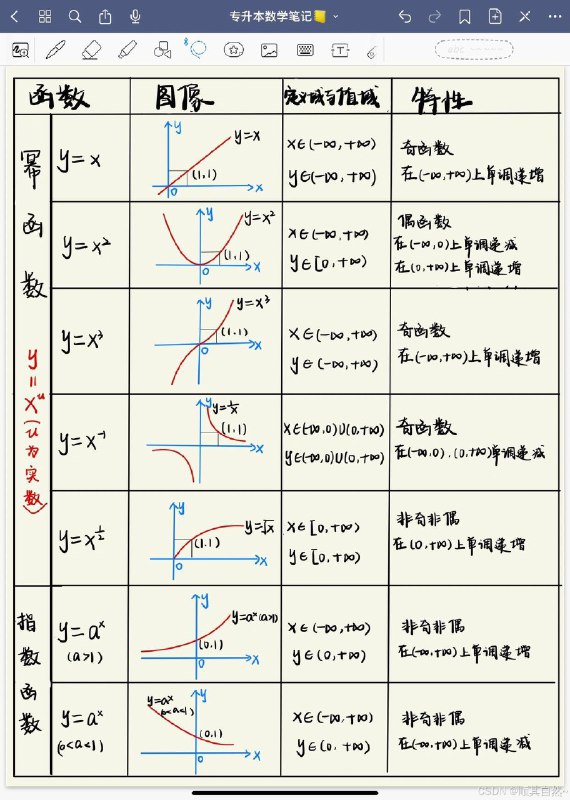 专升本数学笔记
函数 图像 定义域与值域 特性
幂函数 y=x^u (u为实数)
y=x
y
y=x
(1,1)
0 x
x∈(-∞,+∞)
y∈(-∞,+∞)
奇函数
在(-∞,+∞)上单调递增
y=x²
y
y=x²
(1,1)
0 x
x∈(-∞,+∞)
y∈[0,+∞)
偶函数
在(-∞,0)上单调递减
在(0,+∞)上单调递增
y=x³
y
y=x³
(1,1)
0 x
x∈(-∞,+∞)
y∈(-∞,+∞)
奇函数
在(-∞,+∞)上单调递增
y=x⁻¹
y
y=1/x
(1,1)
x
x∈(-∞,0)∪(0,+∞)
y∈(-∞,0)∪(0,+∞)
奇函数
在(-∞,0),(0,+∞)单调递减
y=x^(1/2)
y
y=√x
(1,1)
0 x
x∈[0,+∞)
y∈[0,+∞)
非奇非偶
在(0,+∞)上单调递增
指数函数
y=a^x
(a>1)
y
y=a^x(a>1)
(0,1)
0 x
x∈(-∞,+∞)
y∈(0,+∞)
非奇非偶
在(-∞,+∞)上单调递增
y=a^x
(0<a<1)
y=a^x
(0<a<1)
y
(0,1)
0 x
x∈(-∞,+∞)
y∈(0,+∞)
非奇非偶
在(-∞,+∞)上单调递减
CSDN @顺其自然~